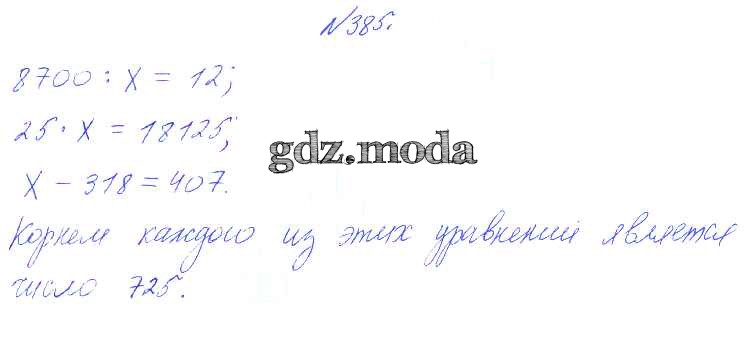 №385.
8700 : x = 12;
25 · x = 18125;
gdz.moda
x - 318 = 407.
Корнем каждого из этих уравнений является
число 725.